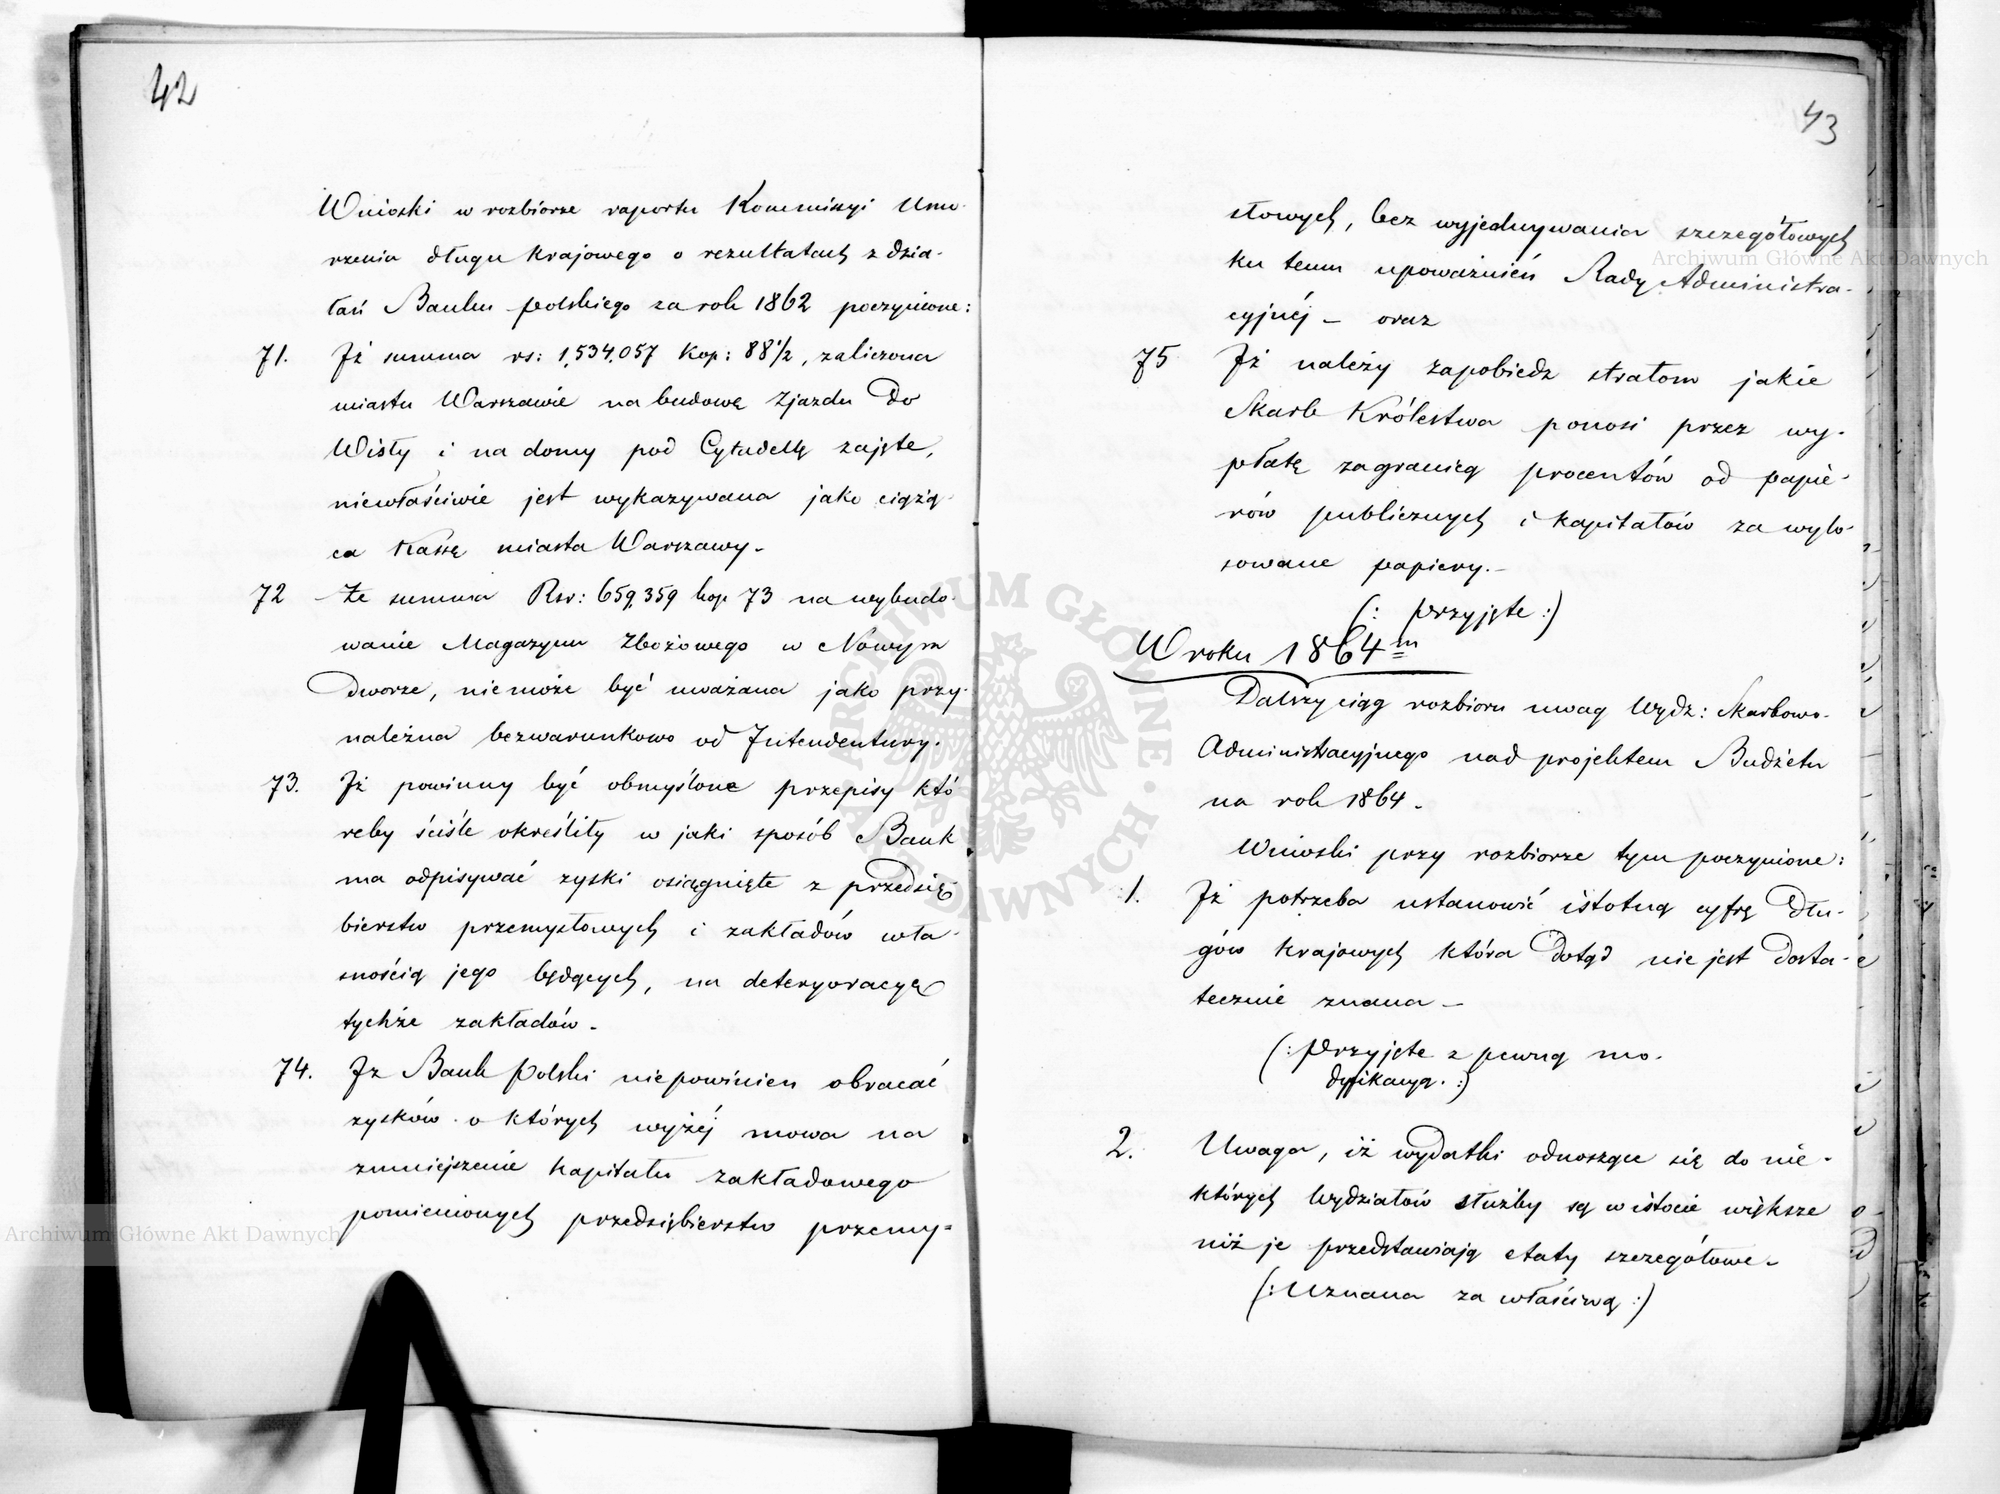 42
Wnioski w rozbiorze raportu Kommissyi Umo-
rzenia długu Krajowego o rezultatach z dzia-
łań Banku polskiego za rok 1862 poczynione:
71. Iż summa rs: 1,534,057 Kop: 88½, zaliczona
miastu Warszawie na budowę Zjazdu do
Wisły i na domy pod Cytadellę zajęte,
niewłaściwie jest wykazywana jako ciążą-
ca Kassę miasta Warszawy.
72 Że summa Rsr: 659,359 kop 73 na wybudo-
wanie Magazynu Zbożowego w Nowym
Dworze, nie może być uważana jako przy-
należna bezwarunkowo od Intendentury.
73. Iż powinny być obmyślone przepisy któ
reby ściśle określiły w jaki sposób Bank
ma odpisywać zyski osiągnięte z przedsię
bierstw przemysłowych i zakładów wła-
snością jego będących, na deteryoracyę
tychże zakładów.
74. Iz Bank Polski nie powinien obracać
zysków o których wyżéj mowa na
zmniejszenie kapitału zakładowego
pomienionych przedsiębierstw przemy=
43
słowych, bez wyjednywania szczegółowych
ku temu upoważnień Rady Administra-
cyjnéj – oraz
75 Iż należy zapobiedz stratom jakie
Skarb Królestwa ponosi przez wy-
płatę zagranicą procentów od papie-
rów publicznych i kapitałów za wylo-
sowane papiery.–
(: przyjęte :)
W roku 1864m
Dalszy ciąg rozbioru uwag Wydz: Skarbowo-
Administracyjnego nad projektem Budżetu
na rok 1864.
Wnioski przy rozbiorze tym poczynione:
1. Iż potrzeba ustanowić istotną cyfrę Dłu-
gów Krajowych która dotąd nie jest dosta-
tecznie znana –
(: Przyjęte z pewną mo-
dyfikacyą. :)
2. Uwaga, iż wydatki odnoszące się do nie-
których Wydziałów służby są w istocie większe
niż je przedstawiają etaty szczegółowe.
(: Uznana za właściwą :)
Archiwum Główne Akt Dawnych
Archiwum Główne Akt Dawnych
ARCHIWUM GŁÓWNE AKT DAWNYCH